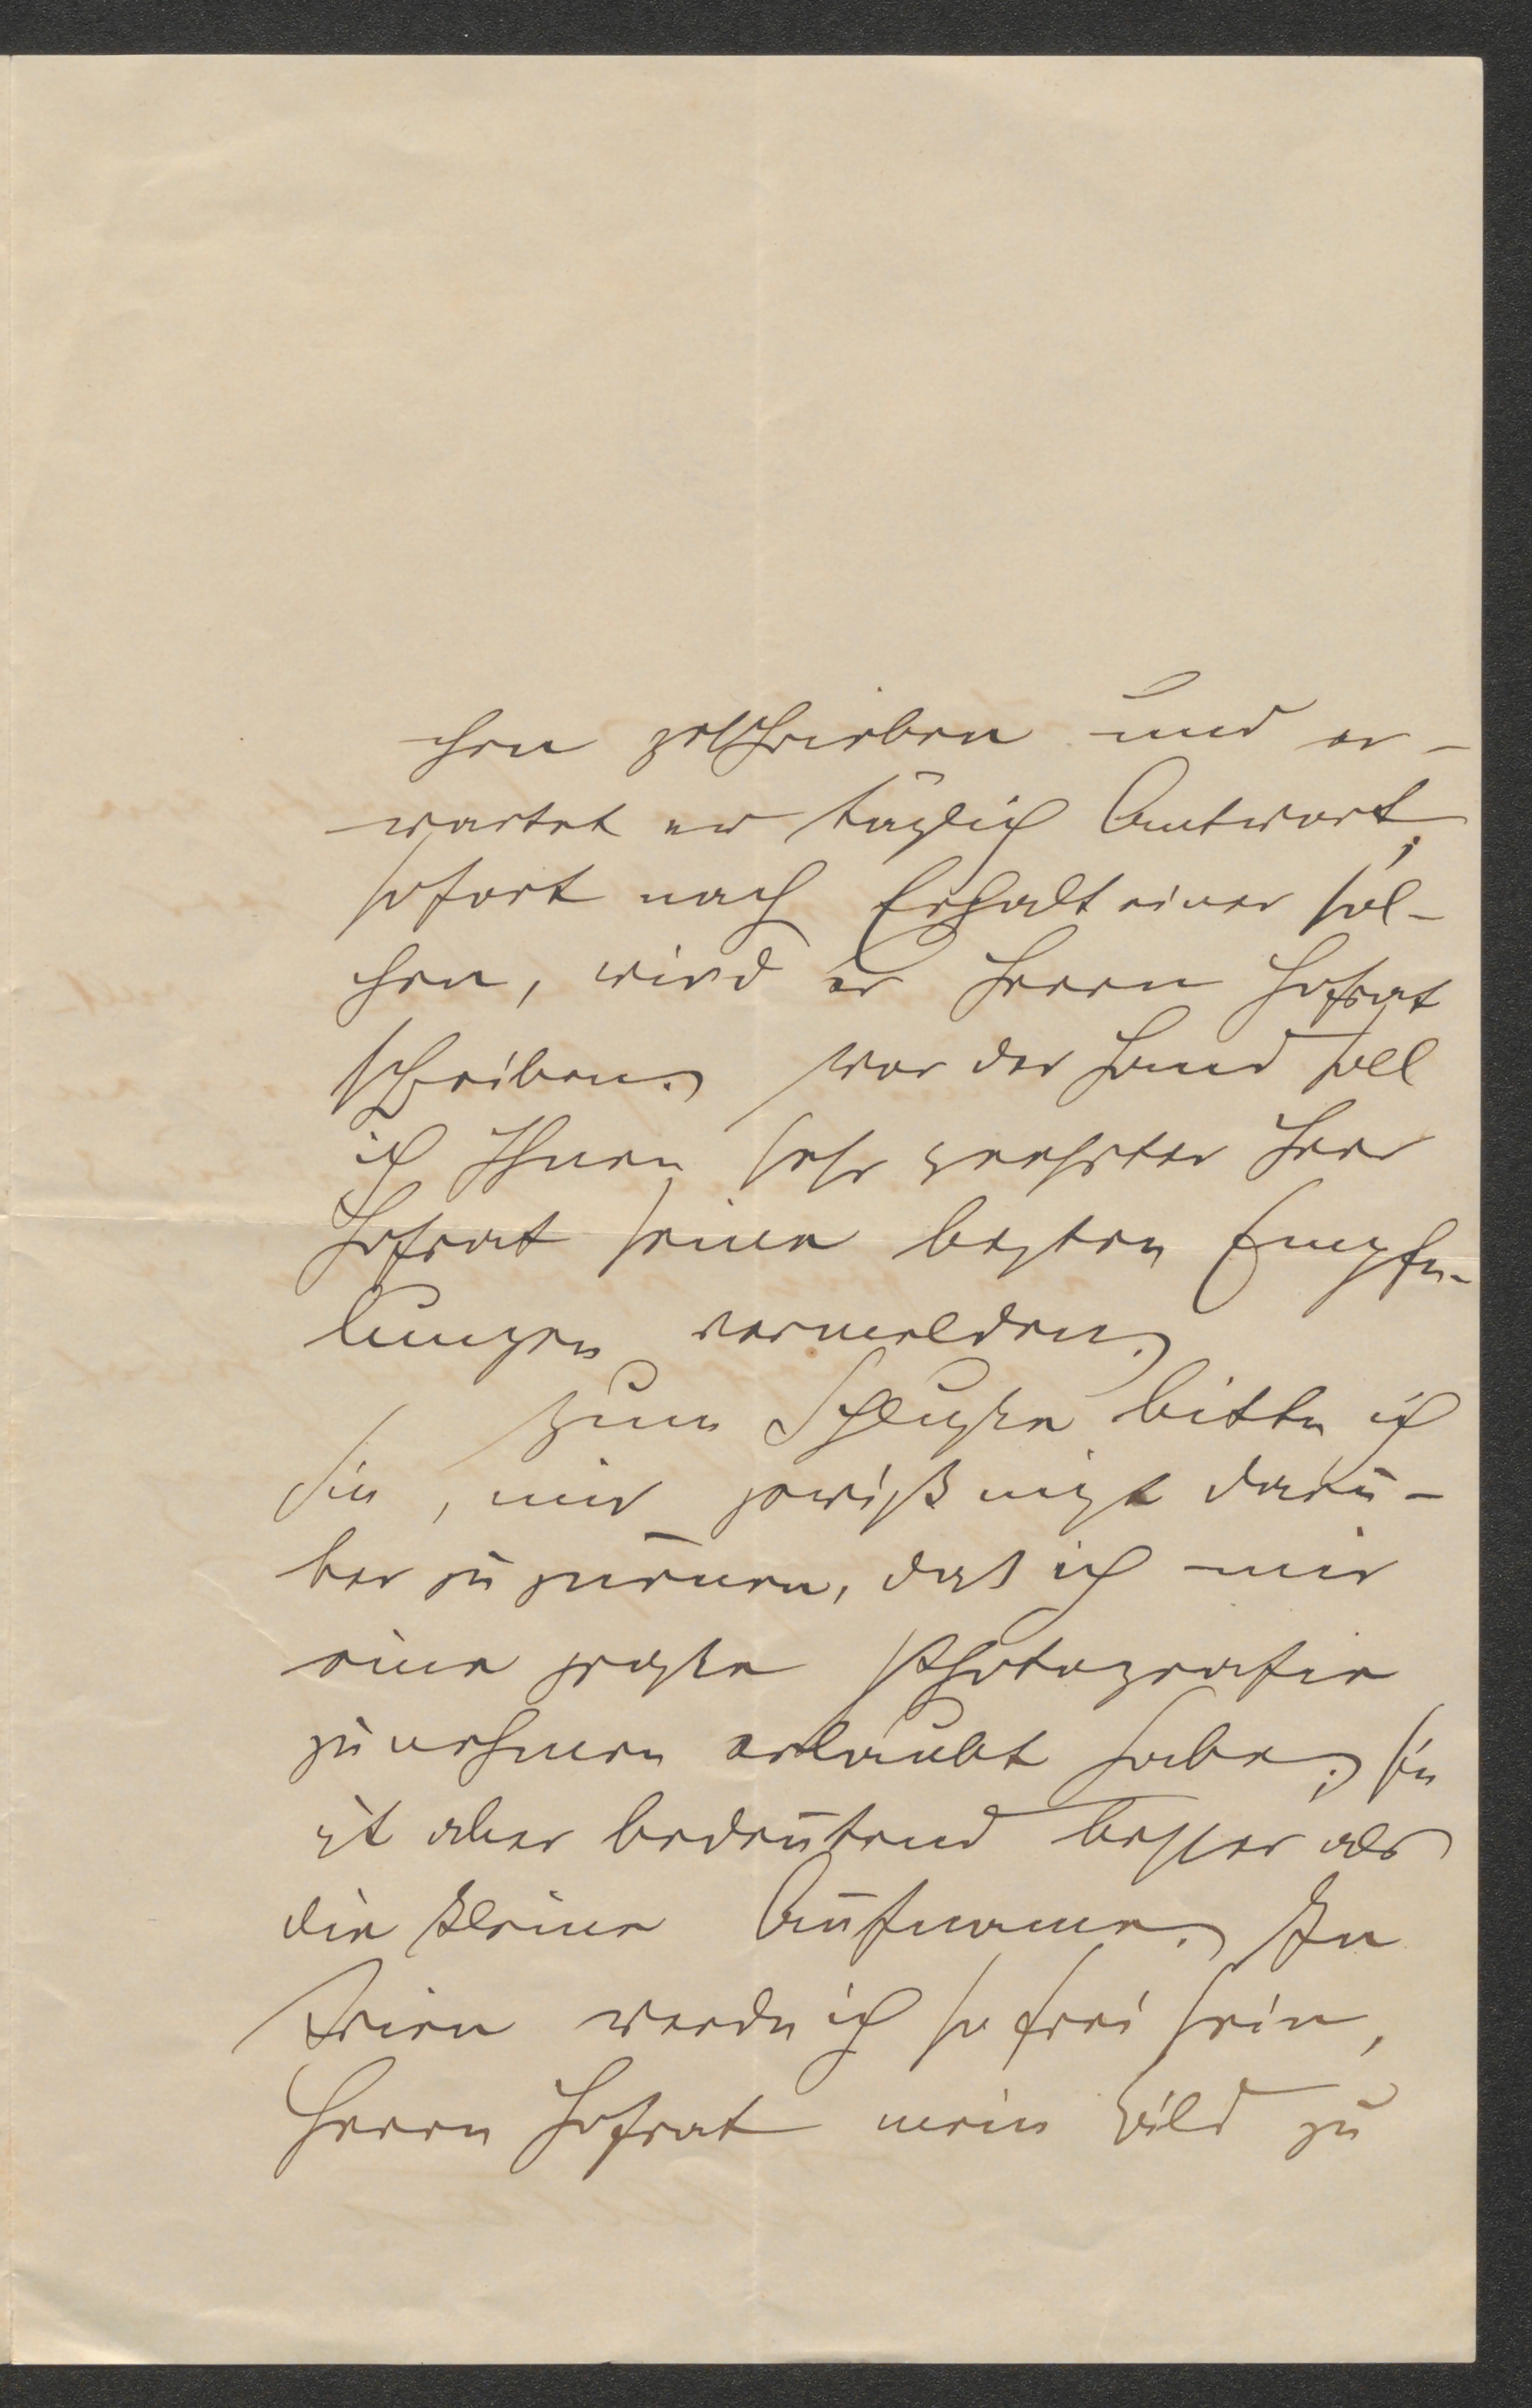 chen geschrieben und er-
wartet er täglich Antwort;
sofort nach Erhalt einer sol-
chen, wird er Herrn Hofrat
schreiben. Vor der Hand soll
ich Ihnen sehr geehrter Herr
Hofrat seine besten Empfe-
lungen vermelden.
Zum Schluße bitte ich
Sie, mir gewiß nicht darü-
ber zu zürnen, daß ich mir
eine große Photografie
zu nehmen erlaubt habe; sie
ist aber bedeutend besser als
die kleine Aufname. In
Wien werde ich so frei sein,
Herrn Hofrat mein Bild zu